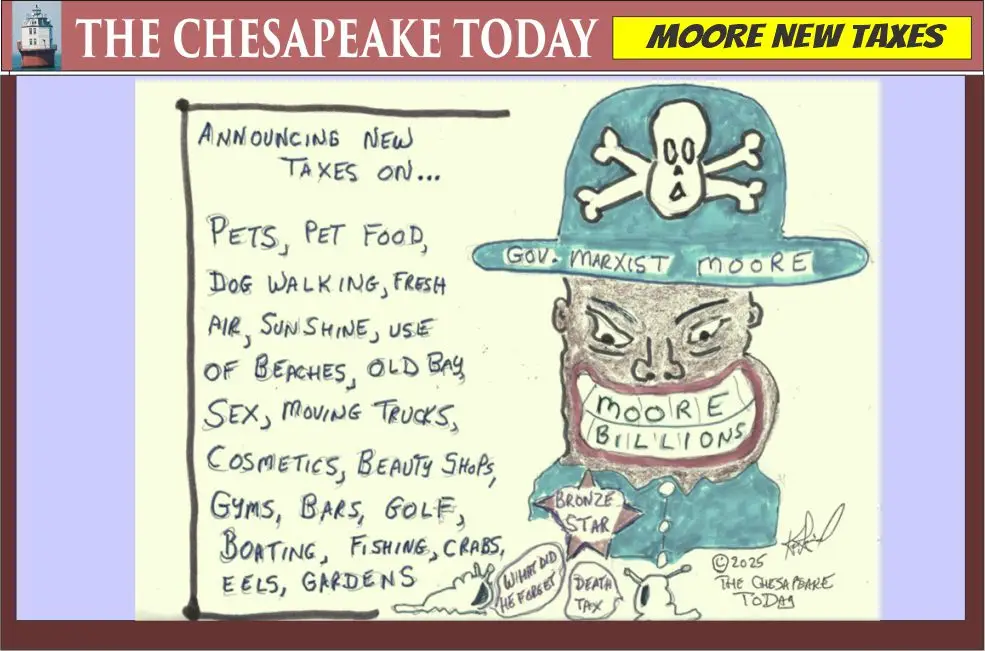 THE CHESAPEAKE TODAY
MOORE NEW TAXES
ANNOUNCING NEW
TAXES ON...
PETS, PET FOOD,
DOG WALKING, FRESH
AIR, SUNSHINE, USE
OF BEACHES, OLD BAY,
SEX, MOVING TRUCKS,
COSMETICS, BEAUTY SHOPS,
GYMS, BARS, GOLF,
BOATING, FISHING, CRABS,
EELS, GARDENS
GOV. MARXIST MOORE
MOORE
BILLIONS
BRONZE
STAR
WHAT DID
HE FORGET
DEATH
TAX
©2025
THE CHESAPEAKE
TODAY